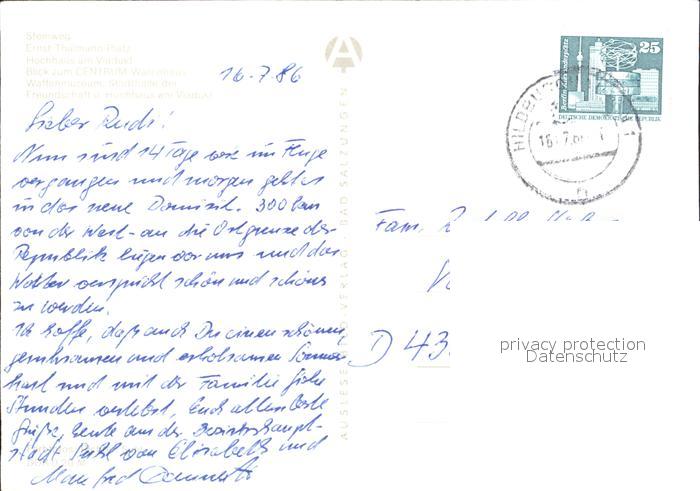 Steinweg
Ernst-Thälmann-Platz
Hochhaus am Viadukt
Blick zum CENTRUM-Warenhaus
Waffenmuseum, Stadthalle der
Freundschaft u. Hochhaus am Viadukt
16.7.86
Lieber Rudi!
Nun sind 14 Tage wie im Fluge
vergangen und morgen geht es
in das neue Domizil. 300 km
von der West- an die Ostgrenze der
Republik liegen vor uns und das
Wetter verspricht schön und schöner
zu werden.
Ich hoffe, daß auch Du einen schönen,
geruhsamen und erholsamen Sommer
hast und mit der Familie frohe
Stunden verlebst. Euch allen beste
Grüße heute aus der Bezirkshaupt-
stadt Suhl von Elisabeth und
Manfred
AUSLESE VERLAG BAD SALZUNGEN
25
Berlin, Alexanderplatz
DEUTSCHE DEMOKRATISCHE REPUBLIK
16.-7.86
Fam.
D 43
privacy protection
Datenschutz